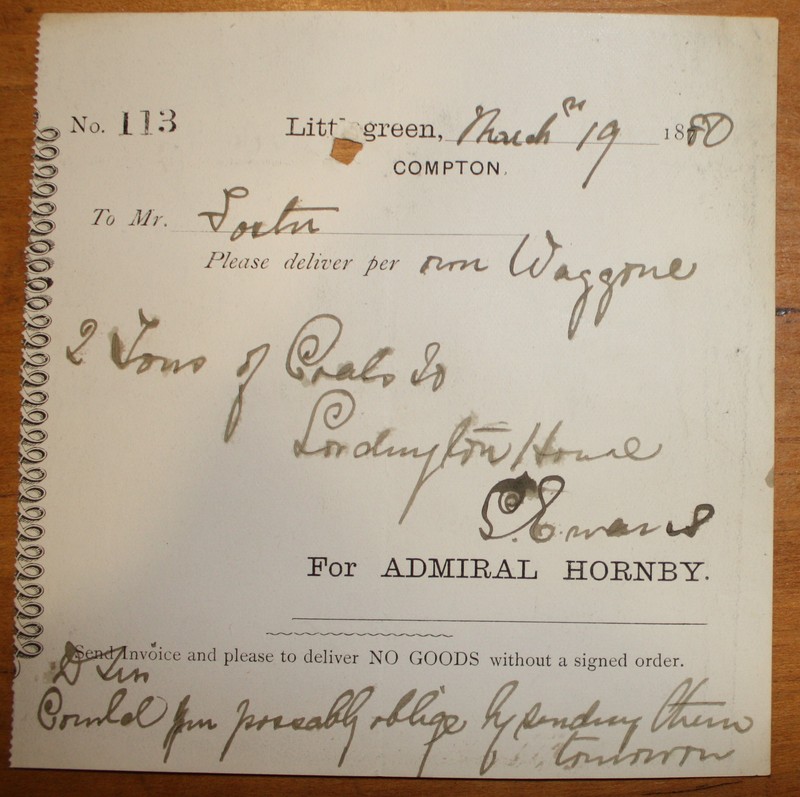 No. 113 Littlegreen, March 19th 1880
COMPTON.
To Mr. Foster
Please deliver per own Waggone
2 Tons of Coals to
Lordington House
Evans
For ADMIRAL HORNBY.
Send Invoice and please to deliver NO GOODS without a signed order.
D Sir
Could you possably oblige by sending them
tomorow